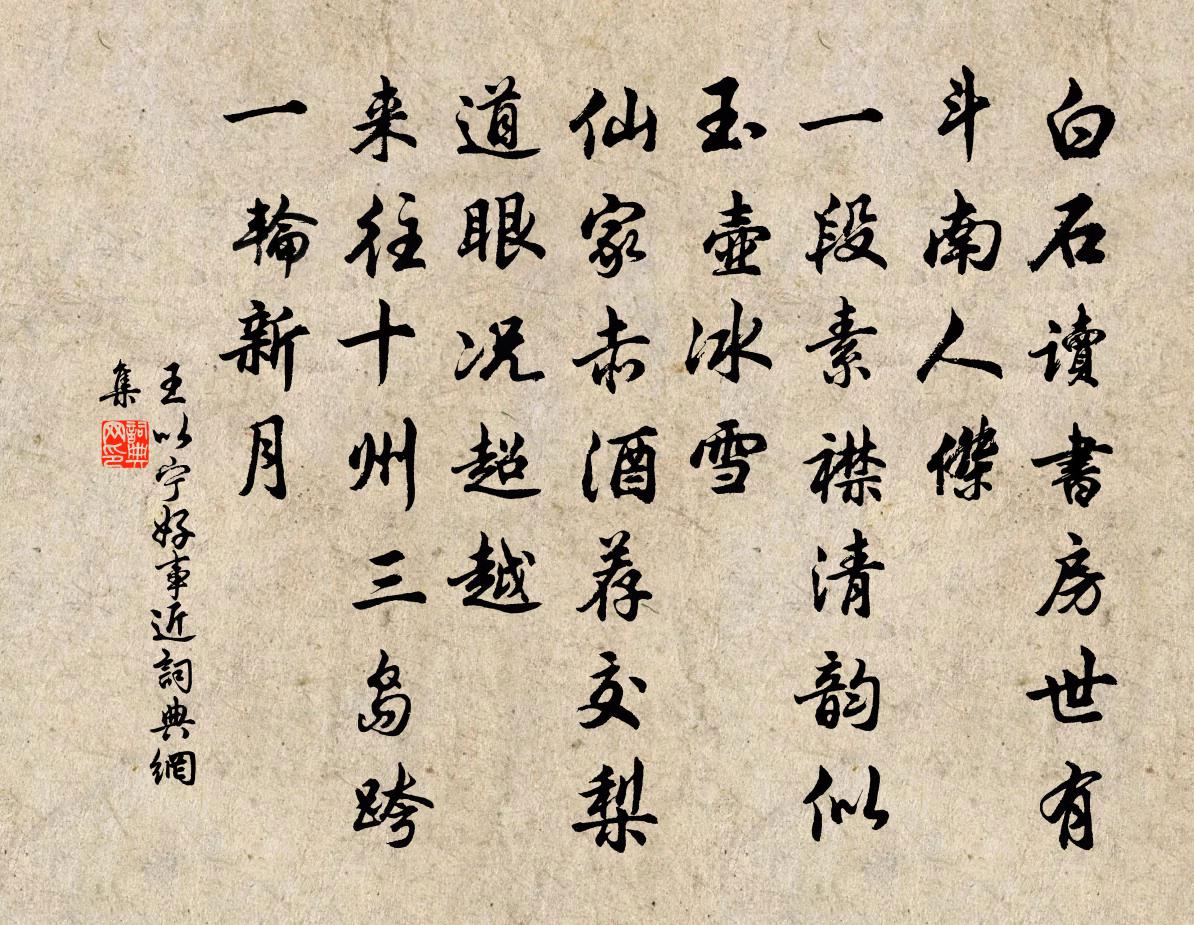 白石讀書房世有
斗南人傑
一段素襟清韵似
玉壺冰雪
仙家赤酒荐交梨
道眼况超越
来往十州三島跨
一輪新月
王以宁好事近詞典網
集
詞典網印